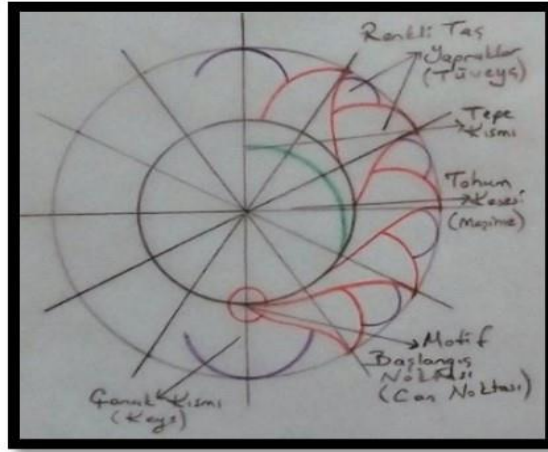 Renkli Taş
Yapraklar
(Tüveys)
Tepe
Kısmı
Tohum
Kesesi
(Meşime)
Motif
Başlangıç
Noktası
(Can Noktası)
Çanak Kısmı
(Keys)